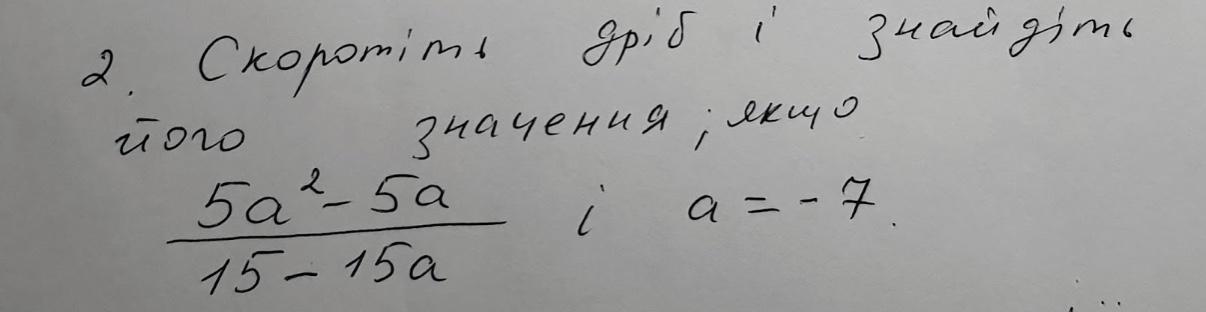 2. Скоротіть дріб і знайдіть
його значення; якщо
5a² - 5a
15 - 15a
і a = - 7.